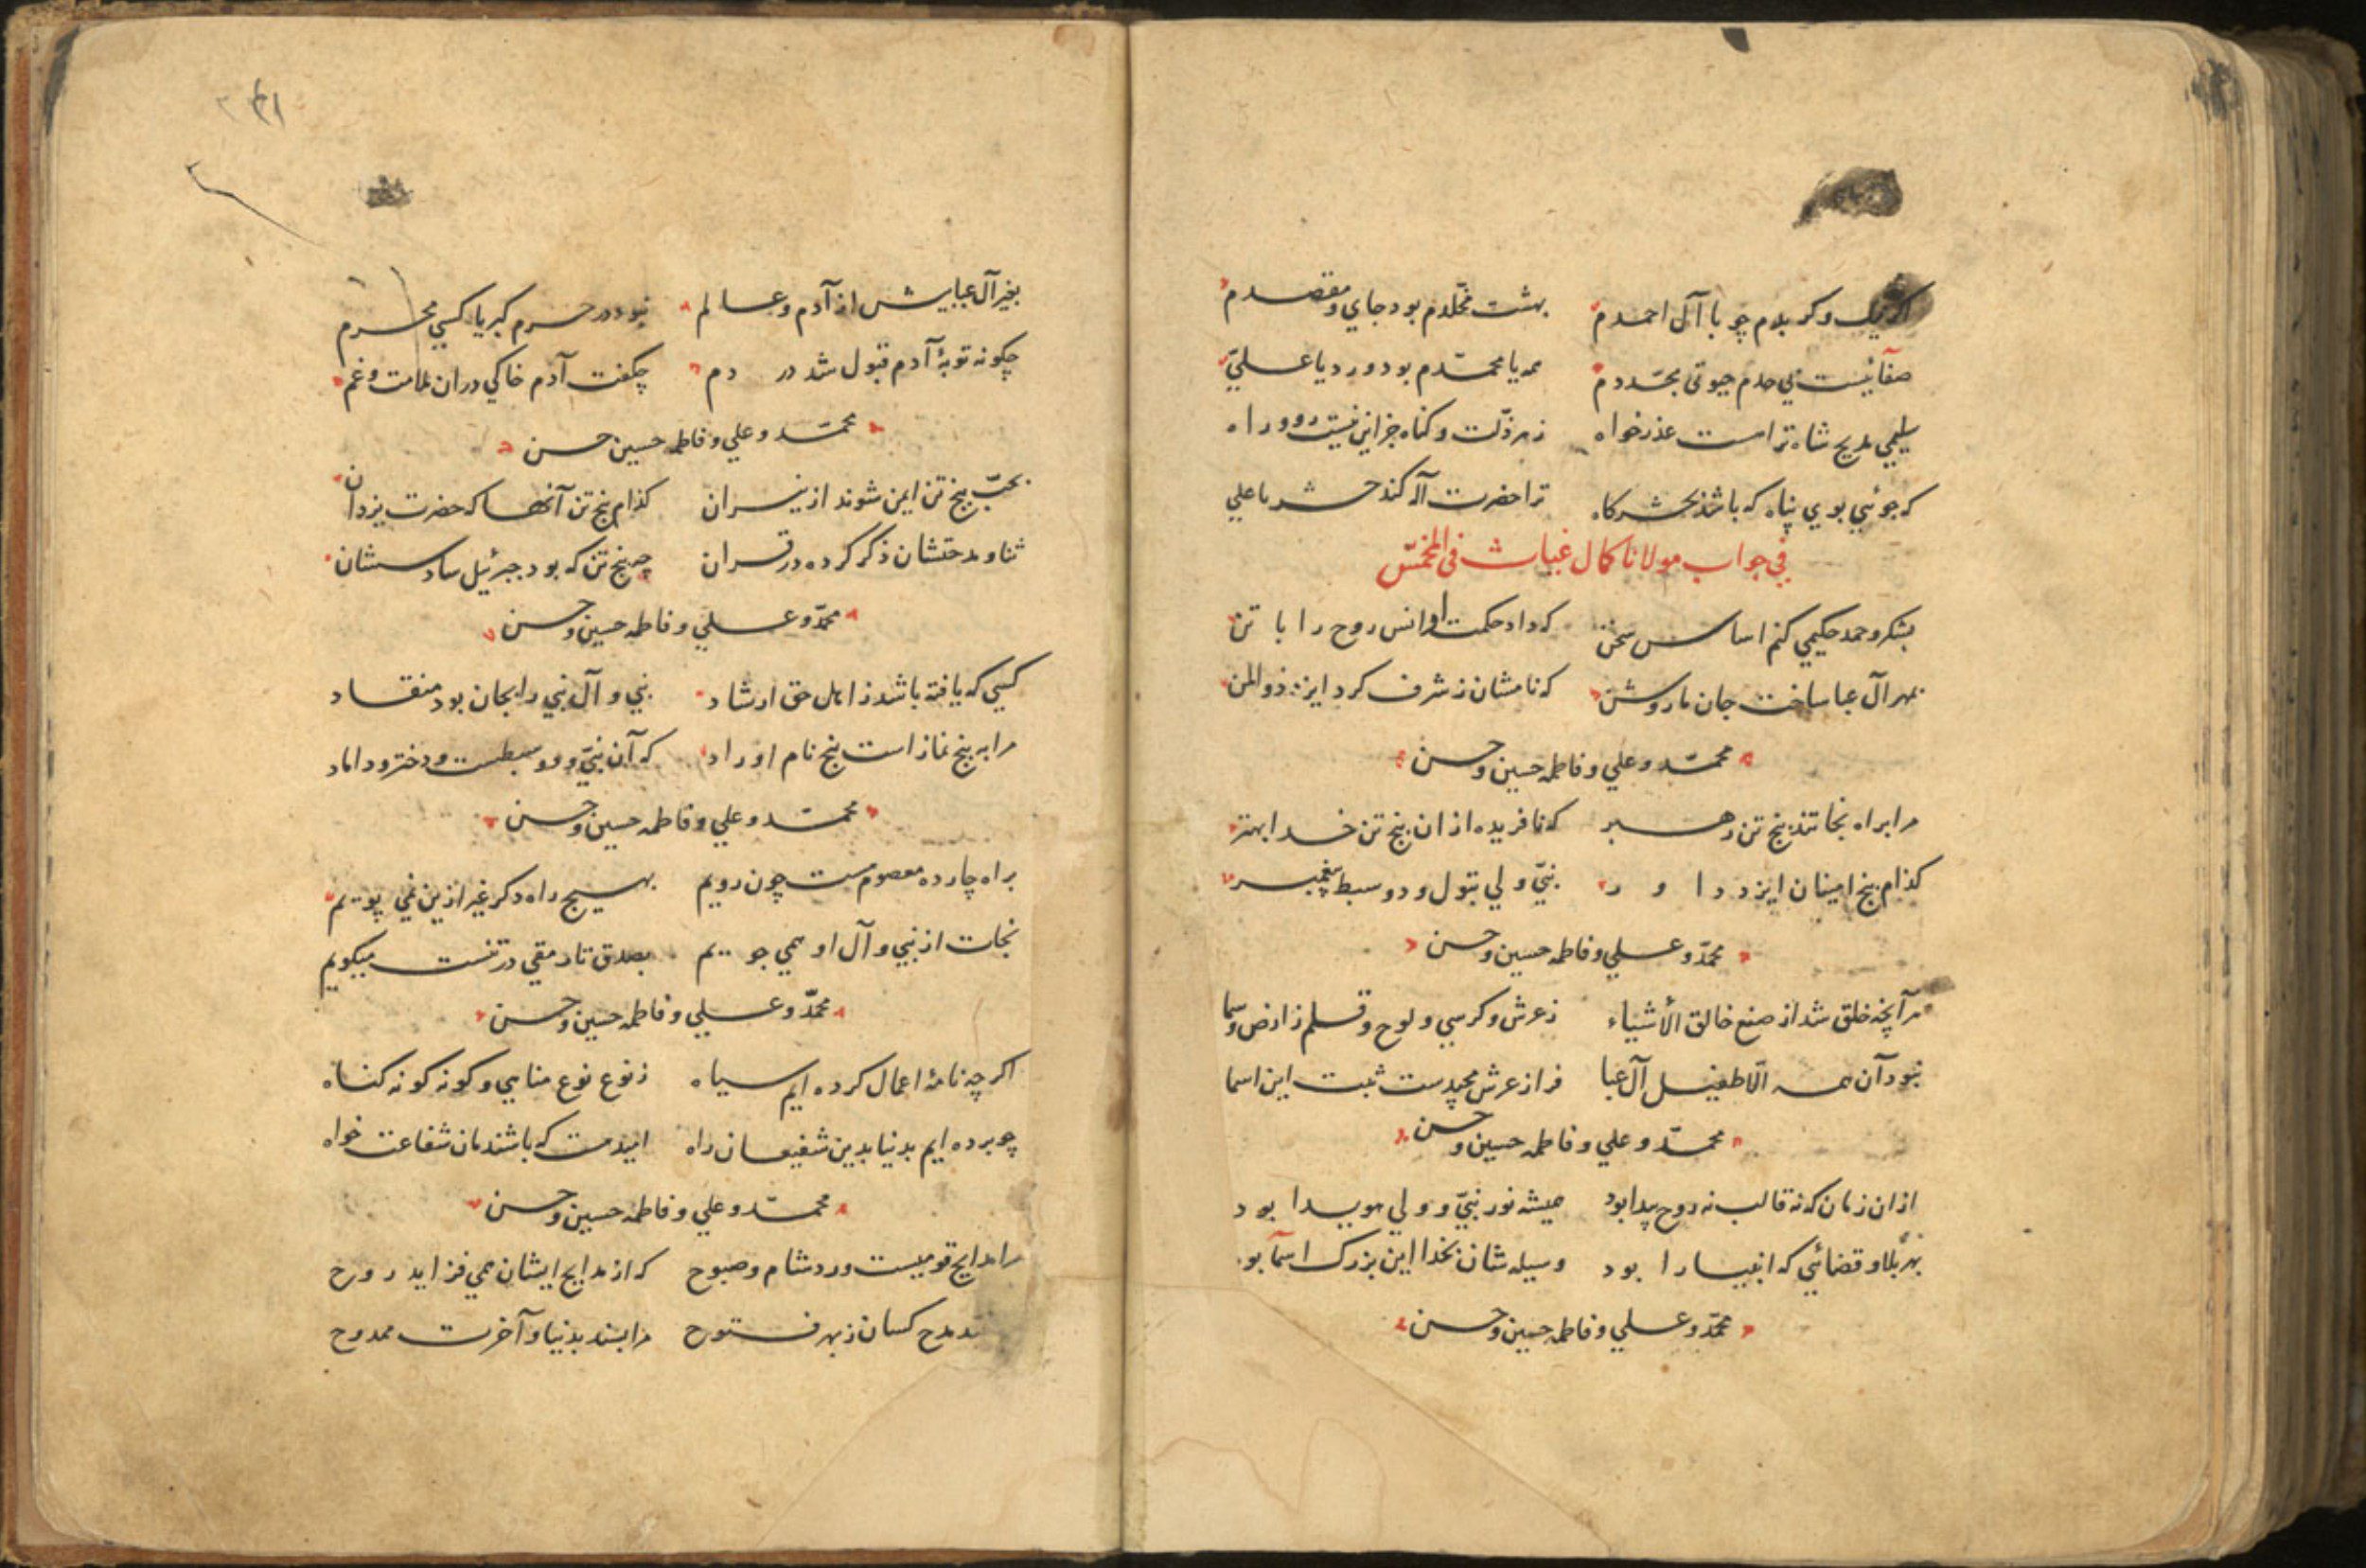 اکر نیک و کر بدم چو با آل احمدم بهشت مخلّدم بود جاي و مقصدم
صفآئیست بي حدم حیوتی مجدّدم همه یا محمّدم بود ورد یا عليّ
سلیمي مدیح شاه تراست عذرخواه زهر ذلّت و کناه جز این نیست روو راه
که جوئي بوي پناه که باشد بحشرکاه ترا حضرت آله کند حشر با علي
في جواب مولانا کمال غیاث فی المخمّس
بشکر و حمد حکیمي کنم اساس سخن که داد حکمت او انس روح را با تن
بمهر آل عبا ساخت جان ما روشن که نامشان ز شرف کرد ایزد ذو المنن
محمّد و علي و فاطمه حسین و حسن
مرا براه نجاتند پنج تن رهبر که نافریده ازان پنج تن خدا بهتر
کدام پنج امینان ایزد داور نبيّ ولي بتول و دو سبط پیغمبر
محمّد و علي و فاطمه حسین و حسن
هر آنچه خلق شد از صنع خالق الأشیاء ز عرش و کرسي و لوح و قلم ز ارض و سما
نبود آن همه الّا طفیل آل عبا فراز عرش مجیدست ثبت این اسما
محمّد و علي و فاطمه حسین و حسن
ازان زمان که نه قالب نه روح پیدا بود همیشه نور نبيّ و ولي هویدا بود
بهر بلا و قضائي که انبیا را بود وسیله شان بخدا این بزرک اسما بود
محمّد و علي و فاطمه حسین و حسن
بغیر آل عبایش از آدم و عالم نبود در حرم کبریا کسي محرم
چکونه توبهٔ آدم قبول شد در دم چکفت آدم خاکي دران ملامت و غم
محمّد و علي و فاطمه حسین حسن
بحبّ پنج تن ایمن شوند از نیران کدام پنج تن آنها که حضرت یزدان
ثنا و مدحتشان ذکر کرده در قران چه پنج تن که بود جبرئیل سادسشان
محمّد و علي و فاطمه حسین و حسن
کسي که یافته باشد ز اهل حق ارشاد نبي و آل نبي را بجان بود منقاد
مرا به پنج نماز است پنج نام اوراد که آن نبيّ و دو سبطست و دختر و داماد
محمّد و علي و فاطمه حسین و حسن
براه چارده معصومست چون رویم بهیچ راه دکر غیر ازین نمي پوییم
نجات از نبي و آل او همي جوییم بصدق تا رمقي در تنست میکویم
محمّد و علي و فاطمه حسین و حسن
اکرچه نامهٔ اعمال کرده ایم سیاه ز نوع نوع مناهي و کونه کونه کناه
چو برده ایم بدنیا بدین شفیعان راه امیدست که باشندمان شفاعت خواه
محمّد و علي و فاطمه حسین و حسن
مرا مدایح قومیست ورد شام و صبوح که از مدایح ایشان همي فزاید روح
مدح کسان ز بهر فتوح مرا بسند بدنیا و آخرت ممدوح